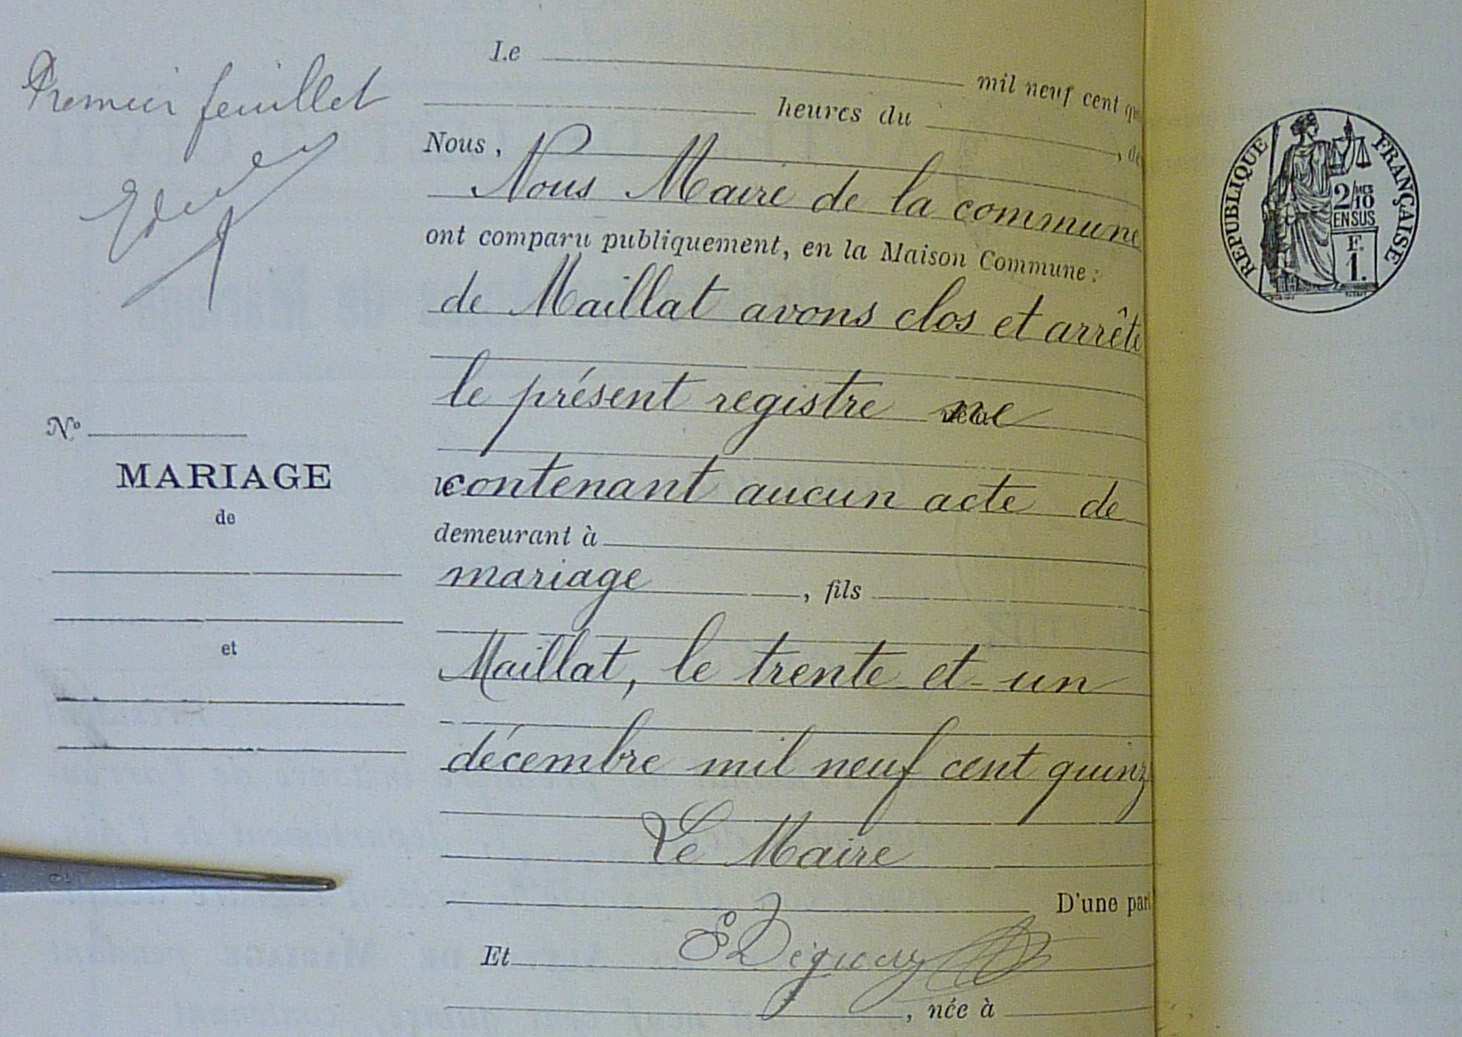 Premier feuillet
Le
mil neuf cent
heures du
Nous,
Nous Maire de la commune
ont comparu publiquement, en la Maison Commune :
de Maillat avons clos et arrêté
le présent registre ne
contenant aucun acte de
demeurant à
mariage , fils
Maillat, le trente et un
décembre mil neuf cent quinz
Le Maire
D'une par
Et
, née à
Nº
MARIAGE
de
et
RÉPUBLIQUE FRANÇAISE
2/10
EN SUS
F.
1.